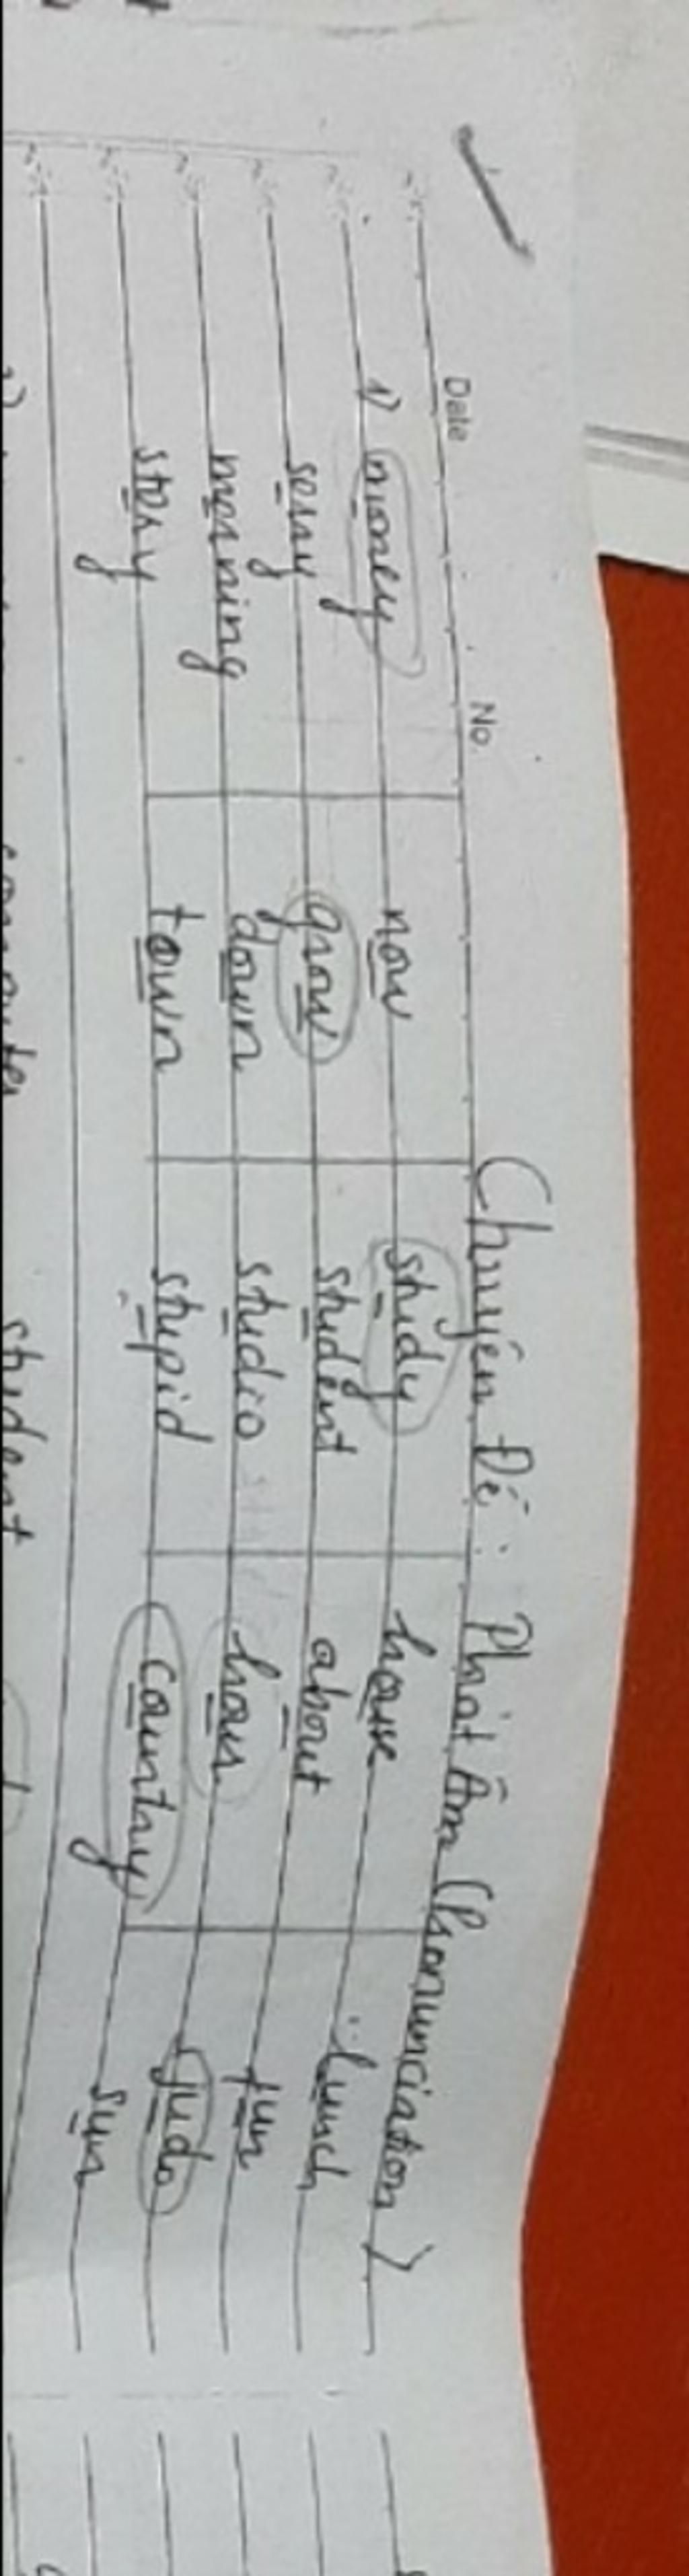 Date No.
Chuyên Đề: Phát Âm (Pronunciation)
1) money now study house lunch
sorry grow student about fun
morning down studio hour judo
story town stupid country sun
computer student